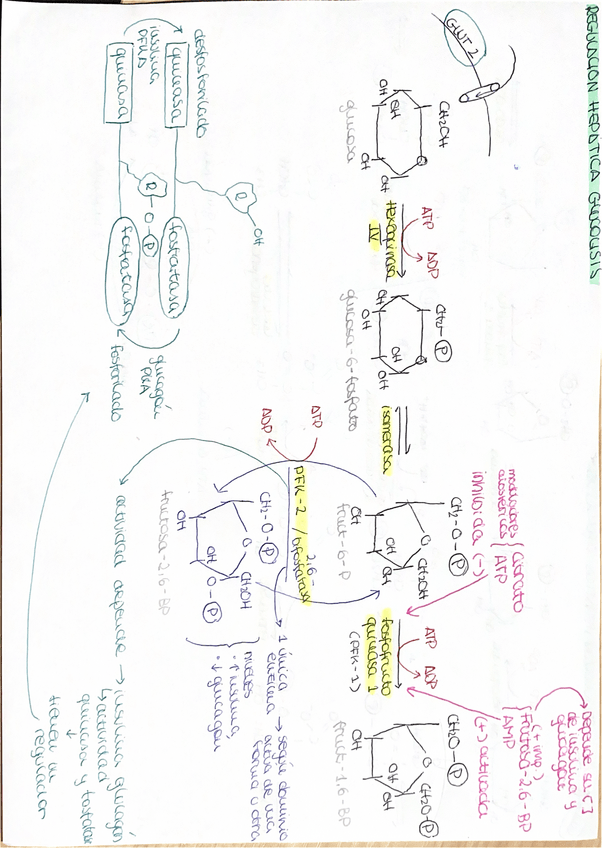 REGULACIÓN HEPÁTICA GLUCOLISIS
GLUT 2
CH2OH
O
OH
OH
OH
OH
glucosa
ATP
ADP
Hexoquinasa
IV
CH2-P
O
OH
OH
OH
OH
glucosa-6-fosfato
isomerasa
moduladores
alostéricos
Citrato
ATP
inhibida (-)
CH2-O-P
O
CH2OH
OH
OH
fruct-6-P
ATP
ADP
fosfofructo
quinasa 1
(PFK-1)
depende su c[]
de insulina y
glucagón
(+ imp.)
fructosa-2,6-BP
AMP
(+) activada
CH2O-P
O
CH2O-P
OH
OH
fruct-1,6-BP
ATP
ADP
PFK-2 / 2,6-
bifosfatasa
CH2-O-P
O
CH2OH
OH
OH
O-P
fructosa-2,6-BP
1 única
enzima
→ según dominio
activa de una
forma u otra
niveles
·↑ insulina
·↓ glucagón
actividad depende → insulina glucagón
↳ actividad
quinasa y fosfatasa
↓
tienen su
regulación
desfosforilado
quinasa
fosfatasa
R
OH
insulina
quinasa
fosfatasa
R-O-P
glucagón
PKA
fosforilado